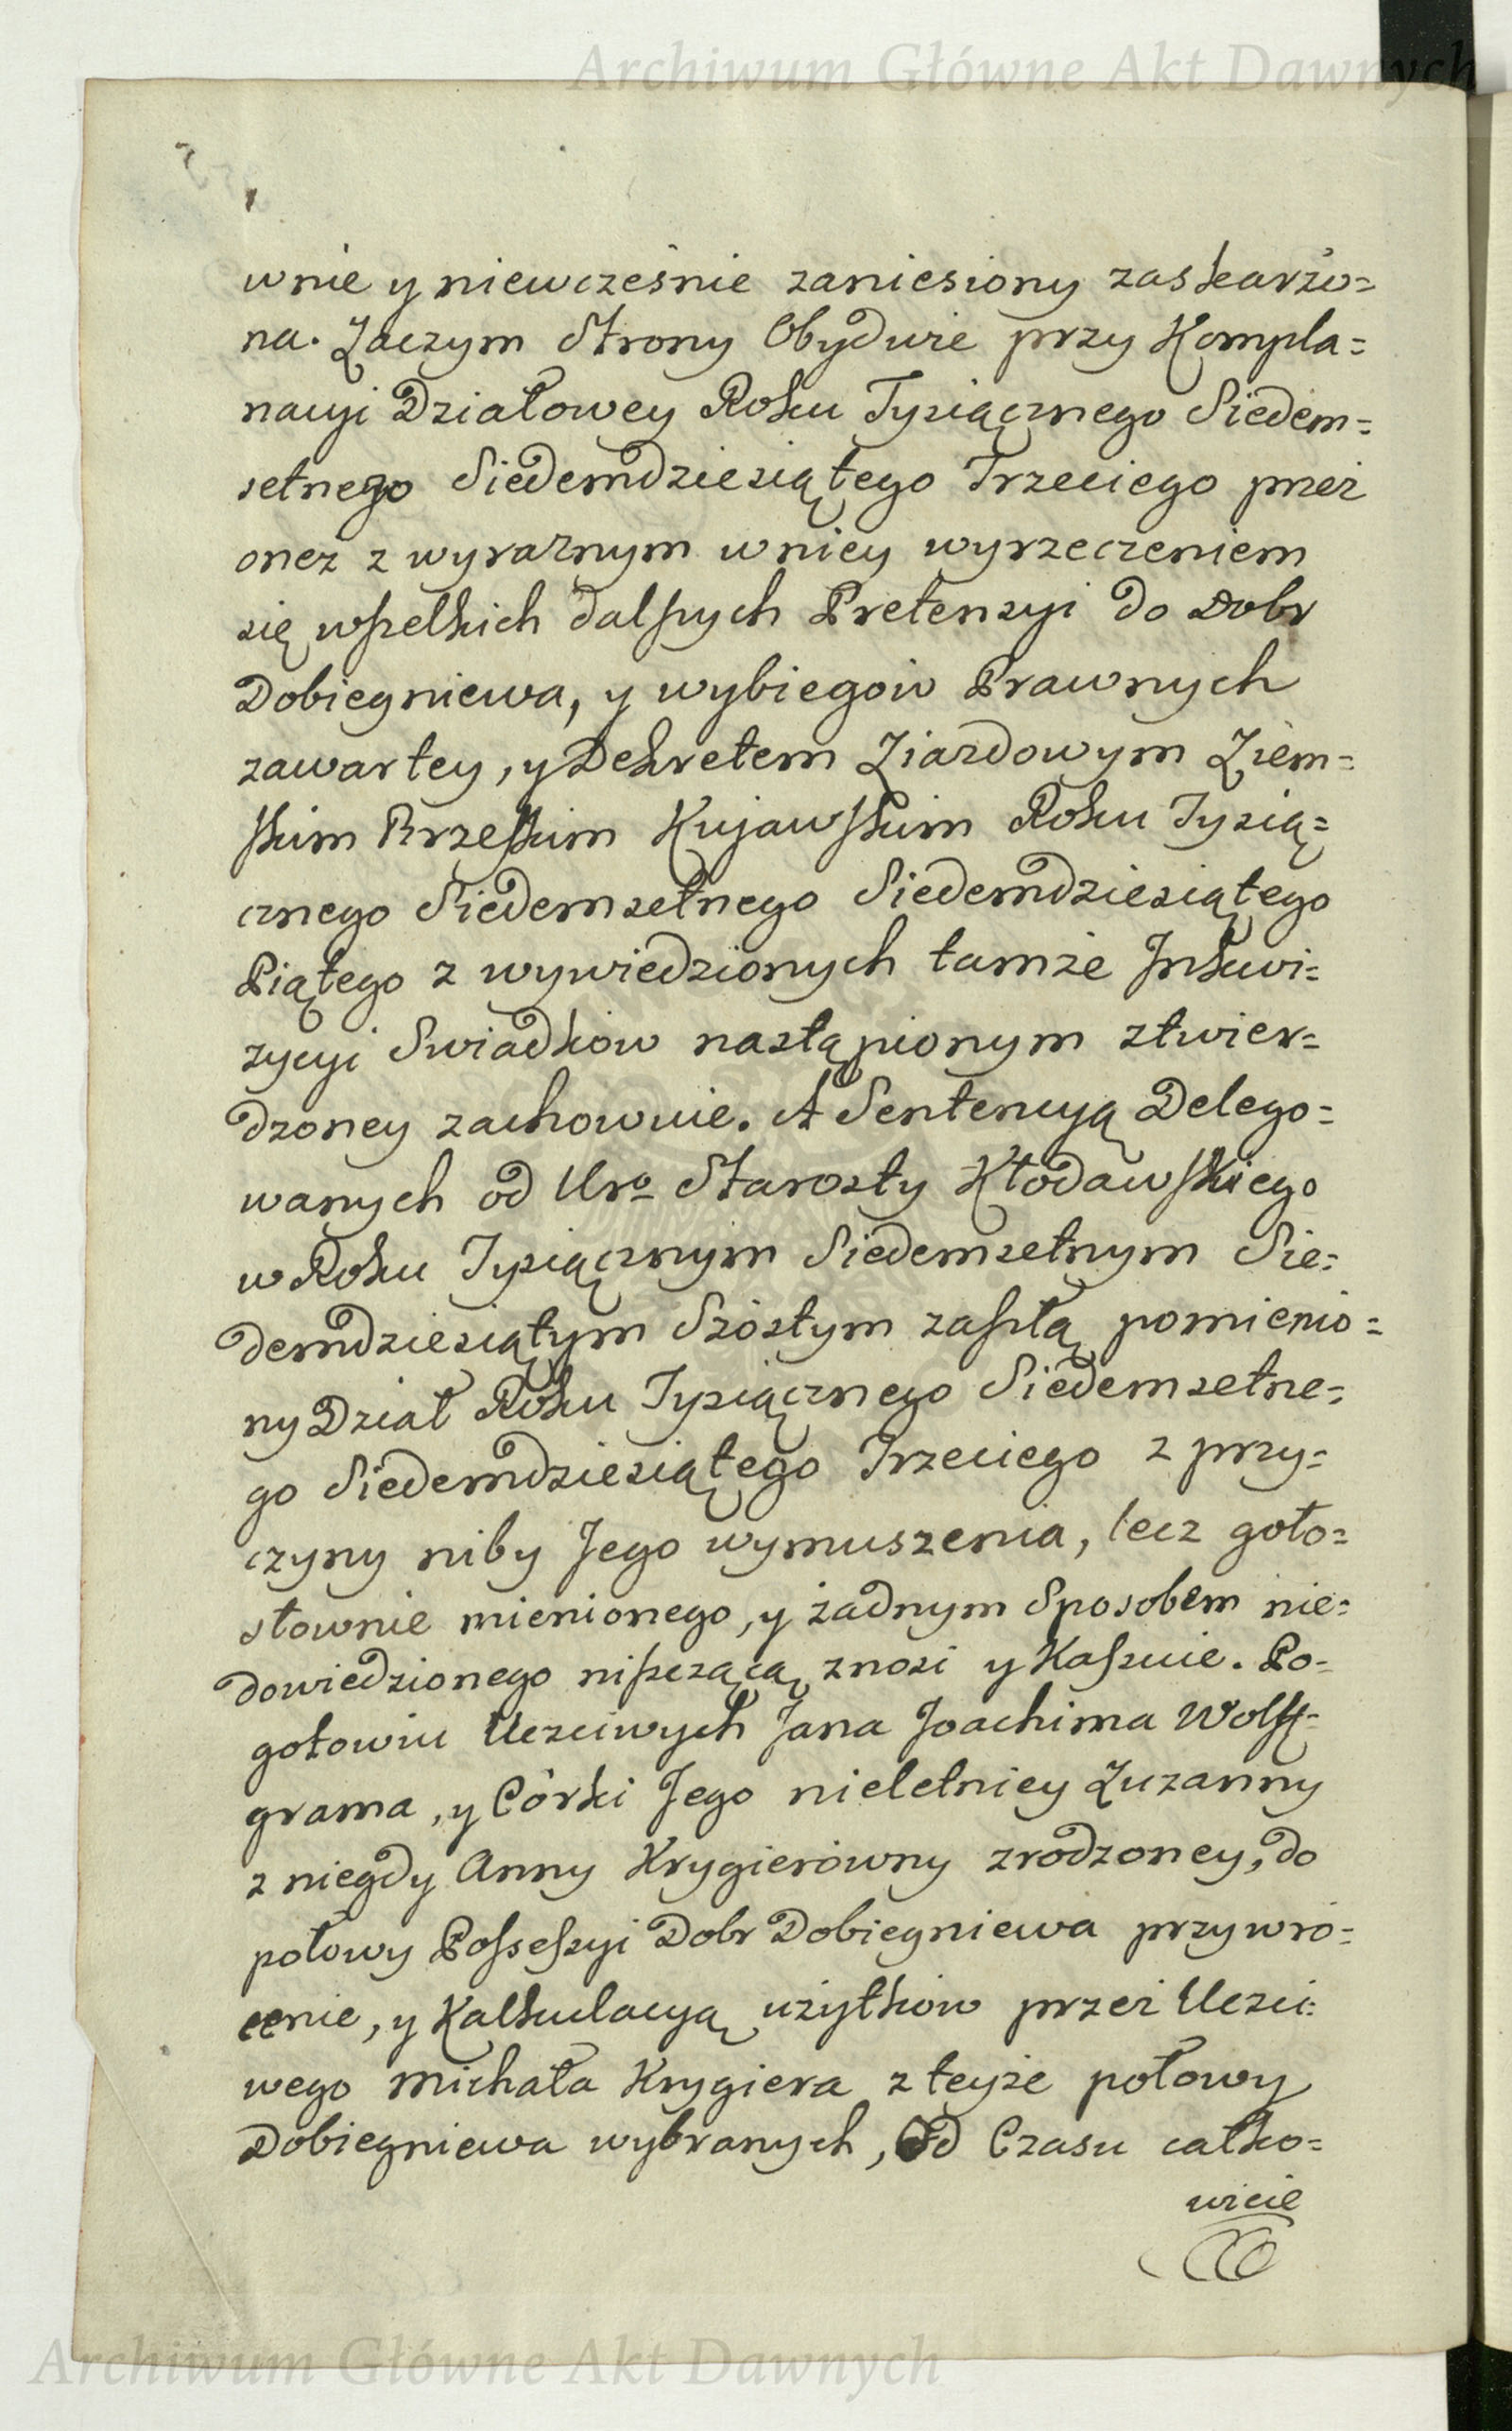 Archiwum Główne Akt Dawnych
wnie y niewcześnie zaniesiony zaskarżo=
na. Zaczym Strony Obydwie przy Kompla=
nacyi Działowey Roku Tysiącznego Siedem=
setnego Siedemdziesiątego Trzeciego przez
onez z wyraznym w niey wyrzeczeniem
się wszelkich dalszych Pretensyi do Dobr
Dobiegniewa, y wybiegow Prawnych
zawartey, y Dekretem Ziazdowym Ziem=
skim Brzeskim Kujawskim Roku Tysią=
cznego Siedemsetnego Siedemdziesiątego
Piątego z wywiedzionych tamże Inkwi=
zycyi Swiadkow nastąpionym stwier=
dzoney zachownie. A Sentencyą Delego=
wanych od Uro Starosty Kłodawskiego
w Roku Tysiącznym Siedemsetnym Sie=
demdziesiątym Szóstym zaszłą pomienio=
ny Dział Roku Tysiącznego Siedemsetne=
go Siedemdziesiątego Trzeciego z przy=
czyny niby Jego wymuszenia, lecz goło=
słownie mienionego, y żadnym Sposobem nie=
dowiedzionego niszczącą znosi y Kassuie. Po=
gotowiu Uczciwych Jana Joachima Wolff=
grama, y Córki Jego nieletniey Zuzanny
z niegdy Anny Krygierówny zrodzoney, do
połowy Possessyi Dobr Dobiegniewa przywró=
cenie, y Kalkulacyą użytkow przez Uczci=
wego Michała Krygiera z teyże połowy
Dobiegniewa wybranych, Od Czasu całko=
wicie
Archiwum Główne Akt Dawnych